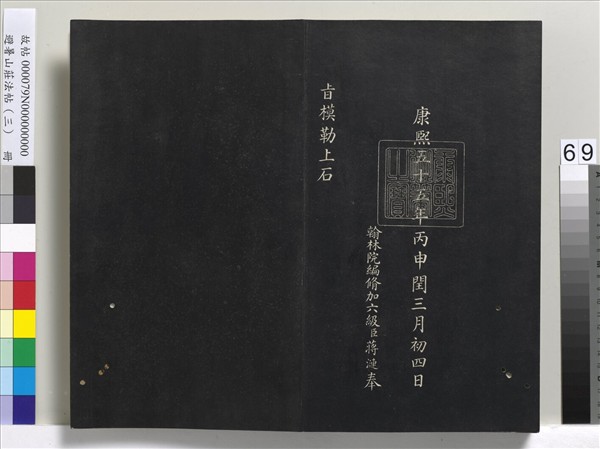 康熙五十五年丙申閏三月初四日
康熙御筆之寶
翰林院編脩加六級臣蔣漣奉
旨模勒上石
故帖 000079N000000000
避暑山莊法帖（三） 冊
69